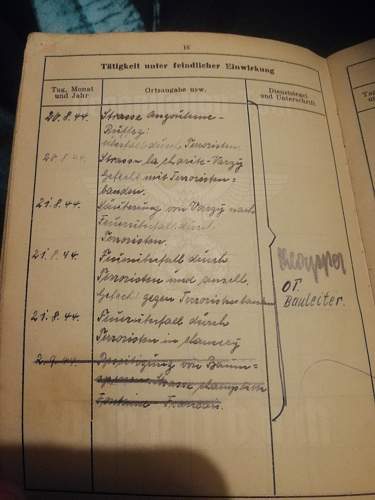 16
Tätigkeit unter feindlicher Einwirkung
Tag, Monat
und Jahr
Ortsangabe usw.
Dienstsiegel
und Unterschrift
20.8.44. Strasse Angouleme-
Ruffeg:
durch Terroristen.
20.8.44. Strasse la charite-Varzy
Gefecht mit Terroristen=
banden.
21.8.44. von Varzy nach
Feuerüberfall durch
Terroristen.
21.8.44. Feuerüberfall durch
Terroristen und anschl.
Gefecht gegen Terroristenbanden
21.8.44. Feuerüberfall durch
Terroristen in
2.9.44. Beseitigung von Baum=
Strasse
Fontaine Francais.
OT
Bauleiter.